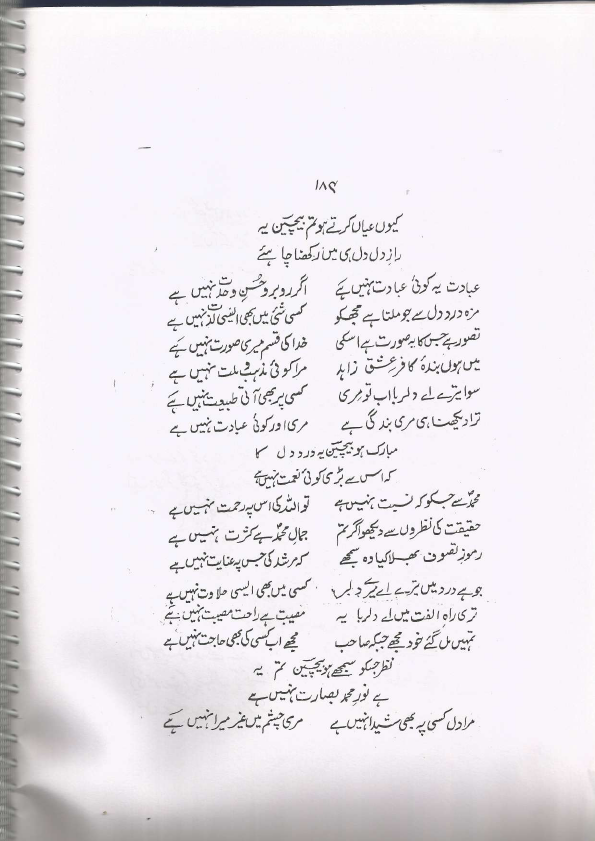 ۱۸۹
کیوں عیاں کرتے ہو تم بیچین یہ
رازِ دل دل ہی میں رکھنا چاہئے
عبادت یہ کوئی عبادت نہیں ہے اگر روبرو حُسنِ وحدت نہیں ہے
مزہ درد دل سے جو ملتا ہے مجھکو کسی شئی میں بھی ایسی لذت نہیں ہے
تصور ہے جس کا یہ صورت ہے اسکی خدا کی قسم میری صورت نہیں ہے
میں ہوں بندۂ کافرِ عشق زاہد مرا کوئی مذہب و ملت نہیں ہے
سوا تیرے اے دلربا اب تو مری کسی پر بھی آتی طبیعت نہیں ہے
ترا دیکھنا ہی مری بندگی ہے مری اور کوئی عبادت نہیں ہے
مبارک ہو بیچین یہ درد دل کا
کہ اس سے بڑی کوئی نعمت نہیں ہے
محمدؐ سے جسکو کہ نسبت نہیں ہے تو اللہ کی اس پہ رحمت نہیں ہے
حقیقت کی نظروں سے دیکھو اگر تم جمالِ محمدؐ ہے کثرت نہیں ہے
رموزِ تصوف بھلا کیا وہ سمجھے کہ مرشد کی جس پہ عنایت نہیں ہے
جو ہے درد میں تیرے اے میرے دلبر کسی میں بھی ایسی حلاوت نہیں ہے
تری راہِ الفت میں اے دلربا یہ مصیبت ہے راحت مصیبت نہیں ہے
تمہیں مل گئے خود مجھے جبکہ صاحب مجھے اب کسی کی بھی حاجت نہیں ہے
نظر جسکو سمجھے ہو بیچین تم یہ
ہے نورِ محمد بصارت نہیں ہے
مرا دل کسی پہ بھی شیدا نہیں ہے مری چشم میں غیر میرا نہیں ہے